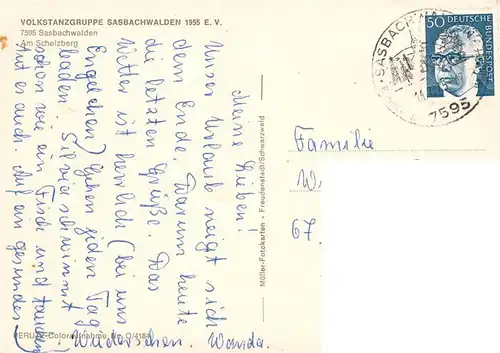 VOLKSTANZGRUPPE SASBACHWALDEN 1955 E. V.
7595 Sasbachwalden
Am Schelzberg
Meine Lieben!
Unser Urlaub neigt sich
dem Ende. Darum heute
die letzten Grüße. Das
Wetter ist herrlich (bei uns
Engelchen) Gehen jeden Tag
baden. Silvia schwimmt
schon wie ein Fisch und taucht
tut es auch. Auf ein gesundes
Wiedersehen. Wanda.
Müller-Fotokarten • Freudenstadt/Schwarzwald
PERUTZ-Coloraufnahme Nr. O/4164
Familie
W.
67.
50 DEUTSCHE
BUNDESPOST
SASBACHWALDEN
7595